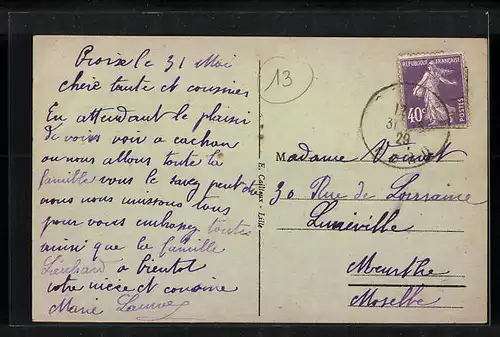 Croix le 31 Mai
chère tante et cousines
En attendant le plaisir
de vous voir a cachan
ou nous allons toute la
famille vous le savez peut être
nous nous unissons tous
pour vous embrasser toutes
ainsi que la famille
Lienhard a bientot
votre nièce et cousine
Marie
13
E. Cailteux - Lille
RÉPUBLIQUE FRANÇAISE
40c
POSTES
Madame Voinot
30 Rue de Lorraine
Lunéville
Meurthe
Moselle